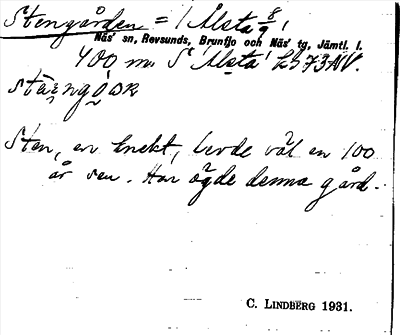 Stengården = 1 Ålsta 8/9,
Näs' sn, Revsunds, Brunflo och Näs' tg, Jämtl. l.
400 m S Ålsta LS73NV.
Sten, en knekt, levde väl en 100
år sen. Han ägde denna gård.
C. LINDBERG 1931.